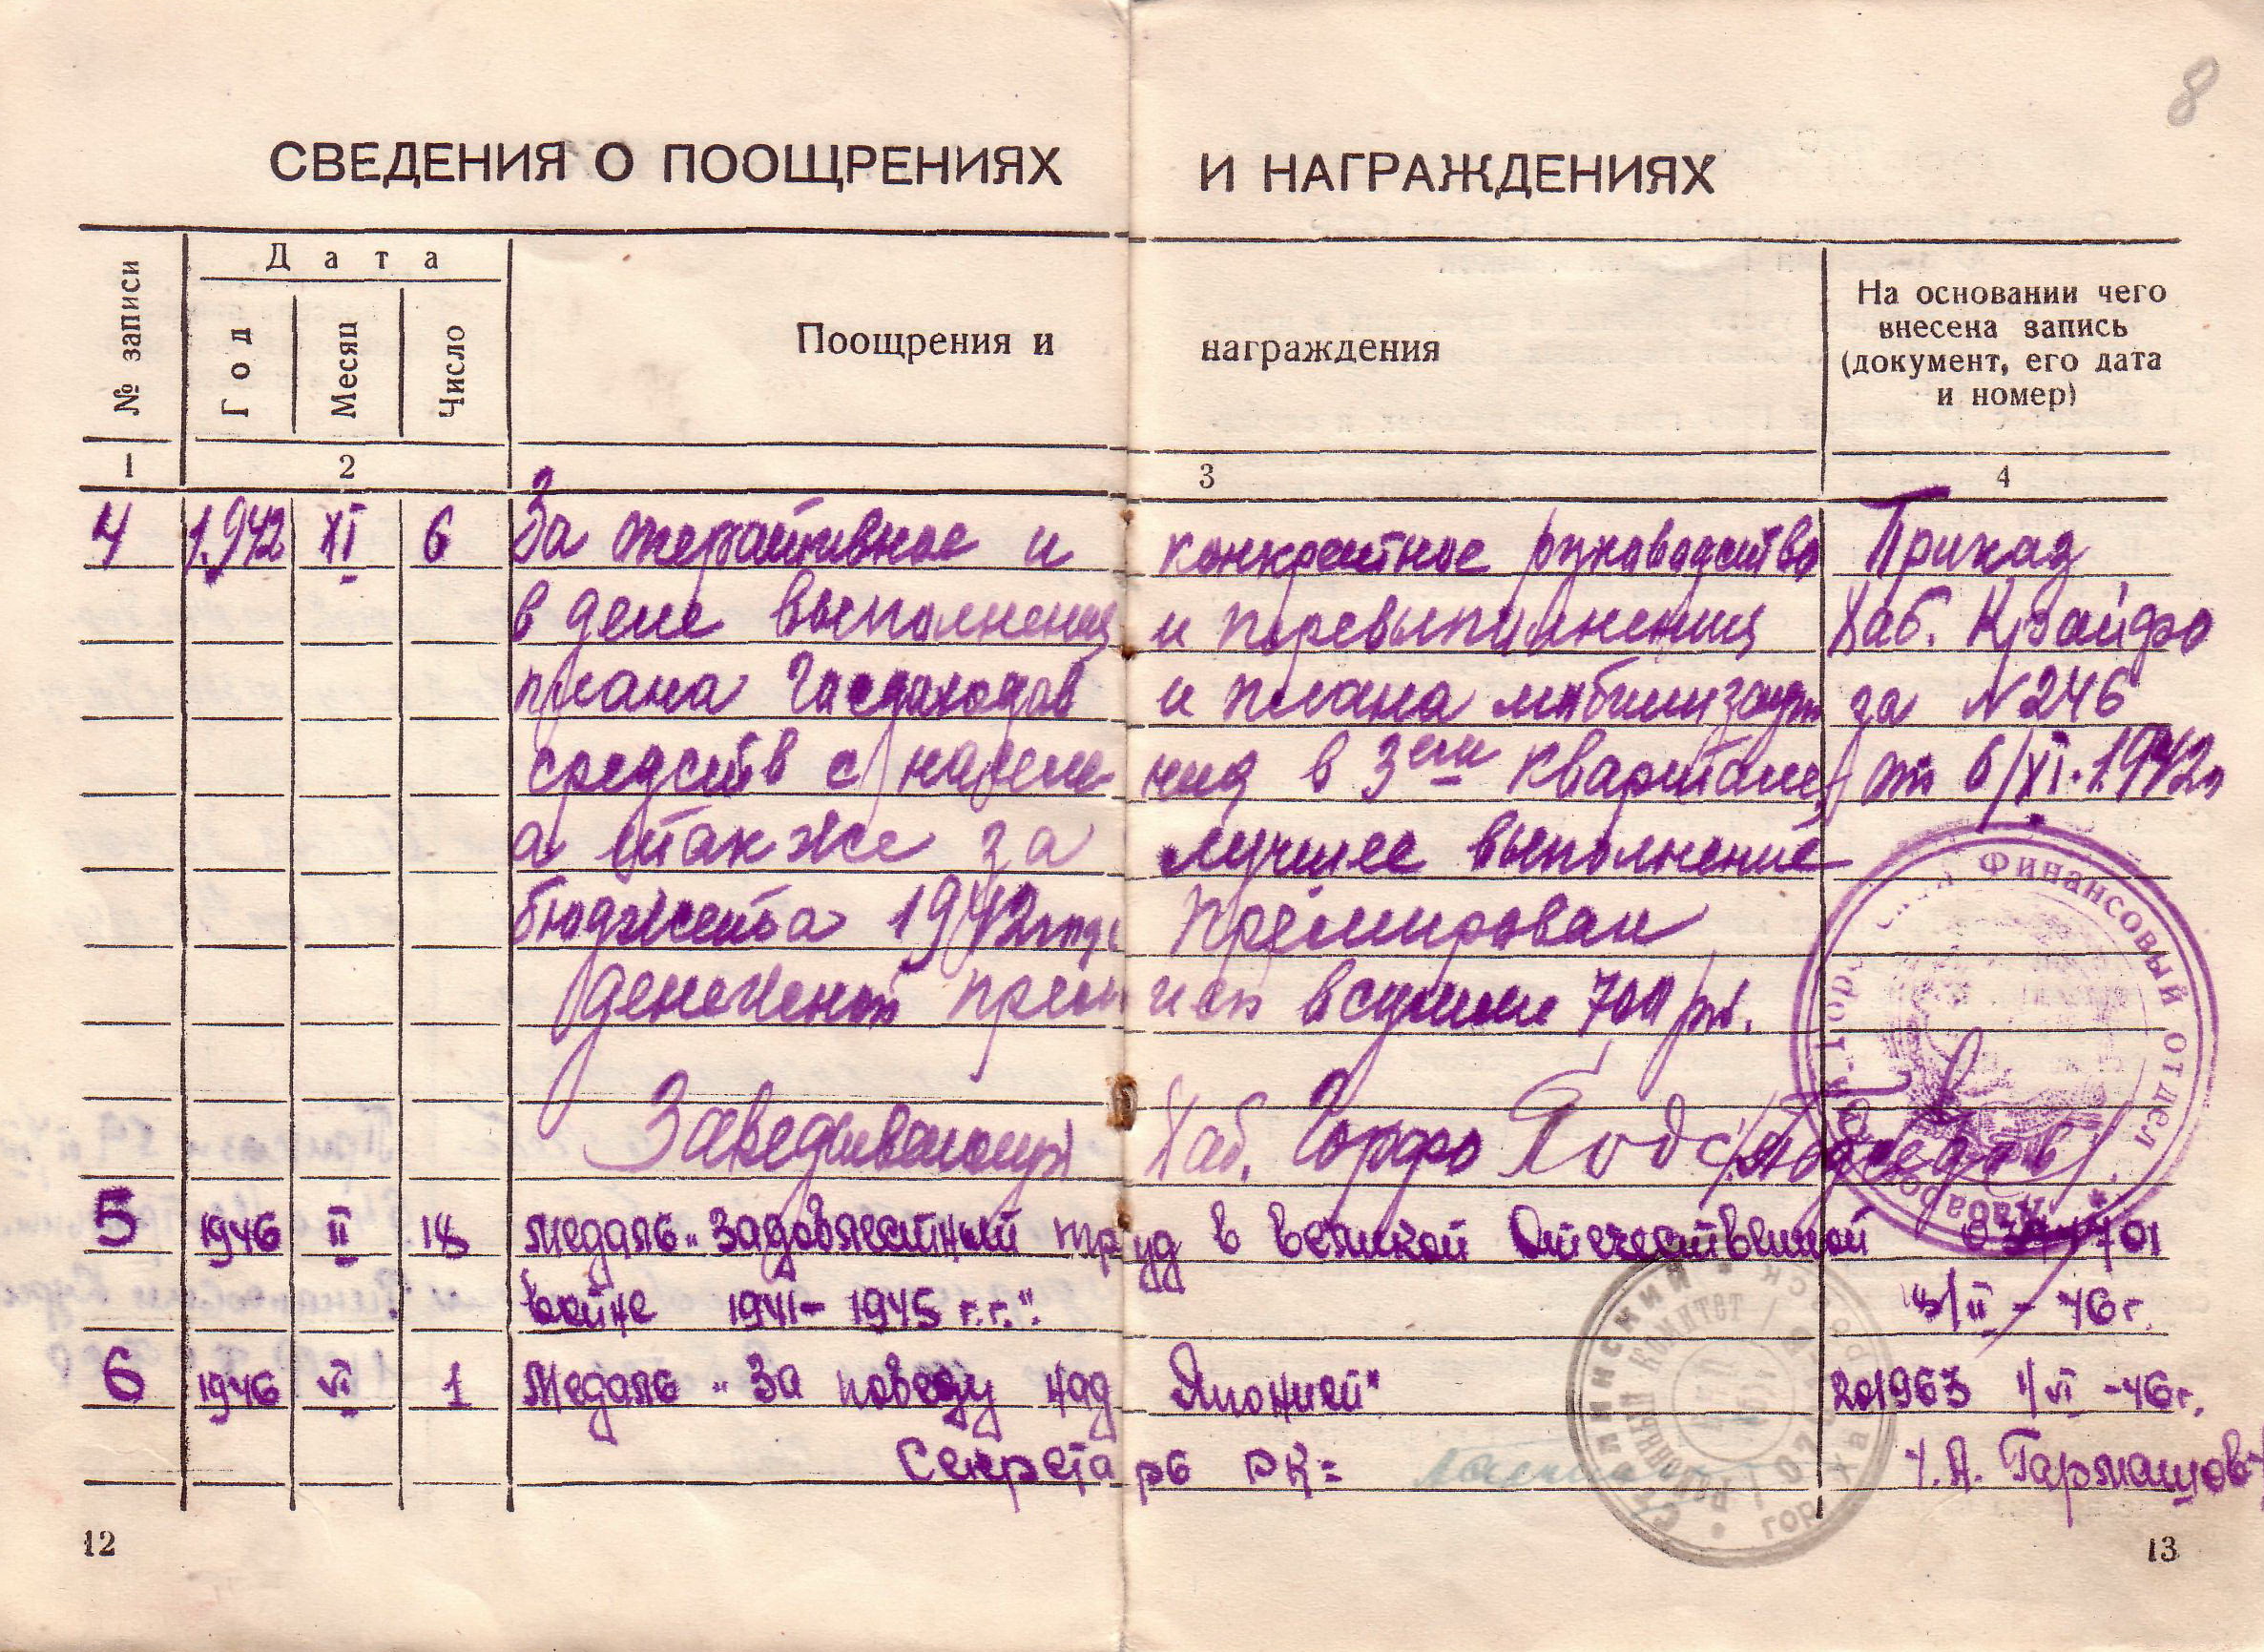 8
СВЕДЕНИЯ О ПООЩРЕНИЯХ И НАГРАЖДЕНИЯХ
№ записи
Дата
Год
Месяц
Число
Поощрения и награждения
На основании чего
внесена запись
(документ, его дата
и номер)
1 2 3 4
4 1942 XI 6 За оперативное и конкретное руководство Приказ
в деле выполнения и перевыполнения Хаб. Крайфо
плана Госдоходов и плана мобилизации за N 246
средств с населения в 3ем квартале, от 6/XI.1942г
а также за лучшее выполнение
бюджета 1942 года Премирован
денежной премией в сумме 700 рб.
Заведывающий Хаб. Горфо
5 1946 II 18 Медаль „Задоблестный труд в Великой Отечественной
войне 1941-1945 г.г.". II-46г.
6 1946 VI 1 Медаль „За победу над Японией" 201963 1/VI-46г.
Секретарь РК= Гармашов
Финансовый Отдел
Сталинский
районный комитет
12
13